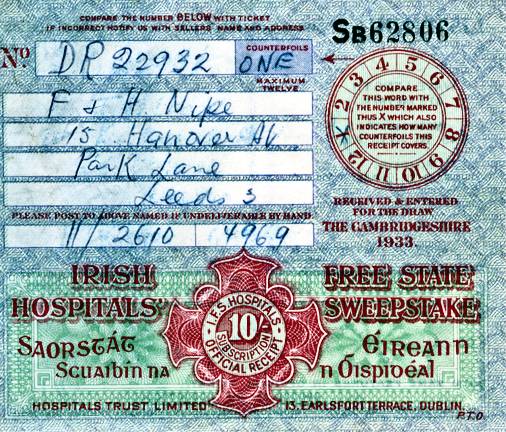 COMPARE THE NUMBER BELOW WITH TICKET
IF INCORRECT NOTIFY US WITH SELLERS NAME AND ADDRESS
SB62806
No DR 22932
COUNTERFOILS
ONE
MAXIMUM
TWELVE
F & H Nipe
15 Hanover Av
Park Lane
Leeds 3
PLEASE POST TO ABOVE NAMED IF UNDELIVERABLE BY HAND
11/2610 4969
X 2 3 4 5 6 7 8 9 10 11 12
COMPARE
THIS WORD WITH
THE NUMBER MARKED
THUS X WHICH ALSO
INDICATES HOW MANY
COUNTERFOILS THIS
RECEIPT COVERS.
RECEIVED & ENTERED
FOR THE DRAW
THE CAMBRIDGESHIRE
1933.
IRISH FREE STATE
HOSPITALS' SWEEPSTAKE
I.F.S. HOSPITALS
10/-
SUBSCRIPTION
OFFICIAL RECEIPT
SAORSTÁT Éireann
Scuaibín na n Óispidéal
HOSPITALS TRUST LIMITED 13, EARLSFORT TERRACE, DUBLIN.
P.T.O.